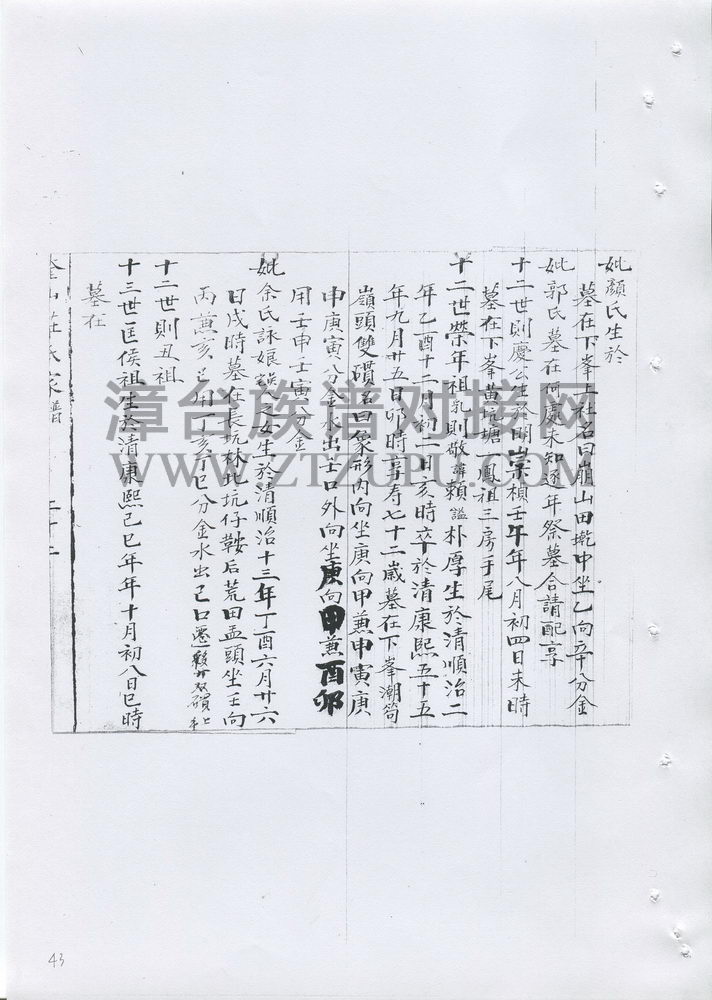 妣顏氏生於
墓在下峯上社名曰崩山田壠中坐乙向辛分金
妣郭氏墓在何處未知逐年祭墓合請配享
十二世則慶公生於明崇禎壬午年八月初四日未時
墓在下峯黃坑塘一鳳祖三房于尾
十二世榮年祖乳則敬諱賴諡朴厚生於清順治二
年乙酉十二月初二日亥時卒於清康熙五十五
年九月廿五日卯時享壽七十二歲墓在下峯潮筒
嶺頭雙礩名曰象形內向坐庚向甲兼申寅庚
申庚寅分金水出士口外向坐庚向甲兼酉卯
用壬申壬寅分金
妣余氏詠娘 公之女生於清順治十三年丁酉六月廿六
日戌時墓在長坑林北坑仔鞍后荒田孟頭坐壬向
丙兼亥巳用丁亥丁巳分金水出己口
十二世則丑祖
十三世匡侯祖生於清康熙己巳年年十月初八日巳時
墓在
莊氏家譜
二十二
漳台族谱对接网
WWW.ZTZUPU.COM
43